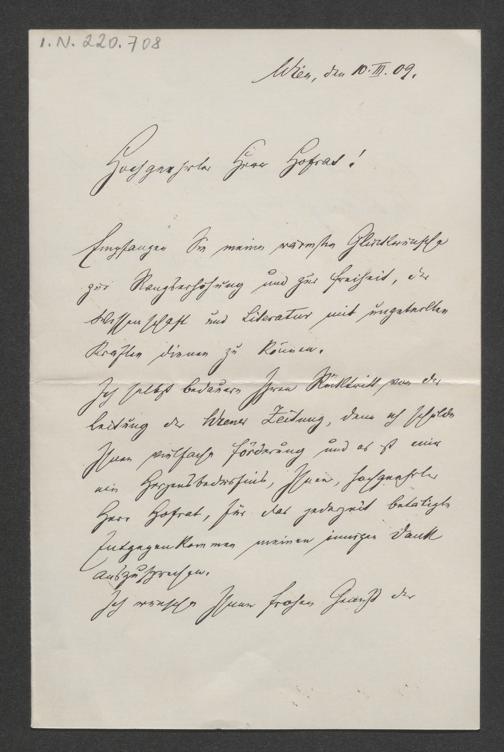 I.N. 220.708
Wien, den 10. III. 09.
Hochgeehrter Herr Hofrat!
Empfangen Sie meine wärmsten Glückwünsche
zur Rangserhöhung und zur Freiheit, der
Wissenschaft und Literatur mit ungeteilten
Kräften dienen zu können.
Ich selbst bedauere Ihren Rücktritt von der
Leitung der Wiener Zeitung, denn ich schulde
Ihnen vielfache Förderung und es ist mir
ein Herzensbedürfnis, Ihnen, hochgeehrter
Herr Hofrat, für das jederzeit betätigte
Entgegenkommen meinen innigen Dank
auszusprechen.
Ich wünsche Ihnen frohen Genuß der